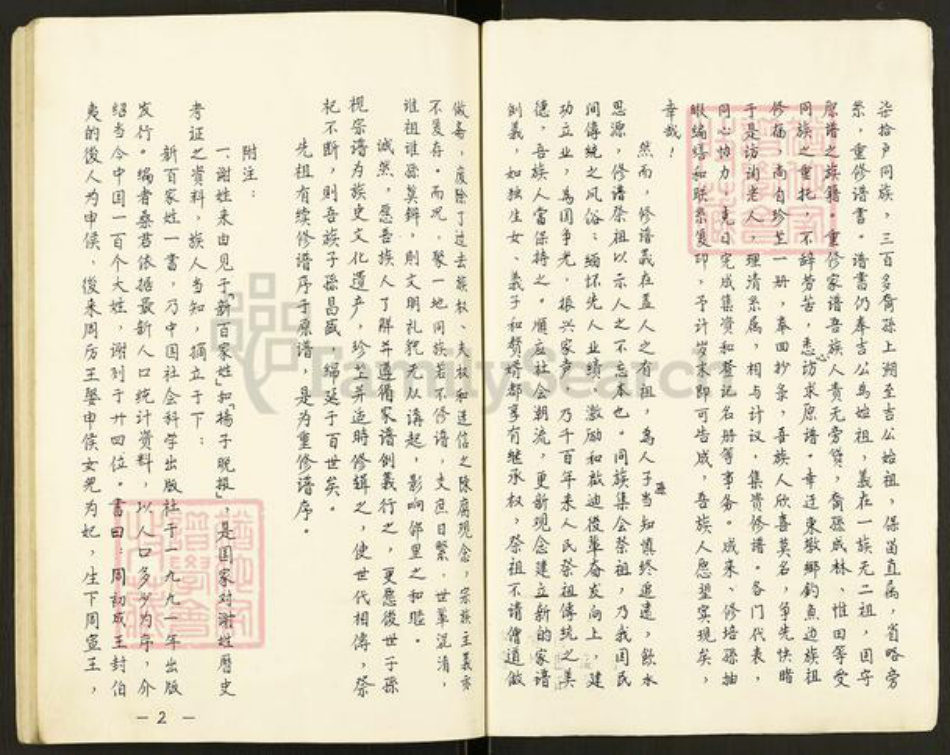 柒拾户同族，三百多裔孙上溯至吉公始祖，保留直属，省略旁
系，重修谱书。谱书仍奉吉公为始祖，義在一族无二祖，固守
原谱之族籍。重修家谱吾族人责无旁贷，裔孫成林、惟田等受
同族之重托，不辞劳苦，悉心访求原谱。幸迁東敦鄉釣魚边族祖
修福、尚自珍芏一册，奉回抄录，喜族人欣喜莫名，争先快睹
于是访询老人，理清系属，相与计议，集资修谱。各门代表，
同心协力，克日完成集资和登记名册等事务。成来、修培孫抽
暇编缮和联系复印，予计岁末即可告成，吾族人愿望实现矣，
幸哉！
然而，修谱義在盖人之有祖，為人子孫当知慎终追遠，飲水
思源，修谱祭祖以示人之不忘本也。同族集会祭祖，乃我国民
间傳统之风俗；缅怀先人业绩，激励和啟迪後輩奋发向上，建
功立业，為国争光，振兴家声，乃千百年来人民祭祖傳统之美
德，吾族人当保持之。順应社会朝流，更新现念建立新的家谱
创義，如独生女、義子和贅婿都享有继承权，祭祖不请僧道做
做斋，废除了过去族权、夫权和迷信之陈腐现念，宗族主義亦
不复存。而况，聚一地同族若不修谱，支庶日繁，世辈混淆，
谁祖谁孫莫辩，则文明礼貌无从講起，影响鄰里之和睦。
诚然，愿吾族人了解并遵循家谱创義行之，更愿後世子孫
视宗谱为族史文化遗产，珍芏并适時修辑之，使世代相傳，祭
祀不断，则吾族子孫昌盛，绵延于百世矣。
先祖有续修谱序于原谱，是为重修谱序。
附注：
一、谢姓来由见于「新百家姓」和「揚子晚报」，是国家对谢姓歷史
考证之資料，族人当知，摘立于下：
新百家姓一書，乃中国社会科学出版社于一九九一年出版
发行。编者桑君依据最新人口统计資料，以人口多少为序，介
绍当今中国一百个大姓，谢列于廿四位。書曰：周初成王封伯
夷的後人为申侯，後来周厉王娶申侯女兒为妃，生下周宣王，
— 2 —
FamilySearch